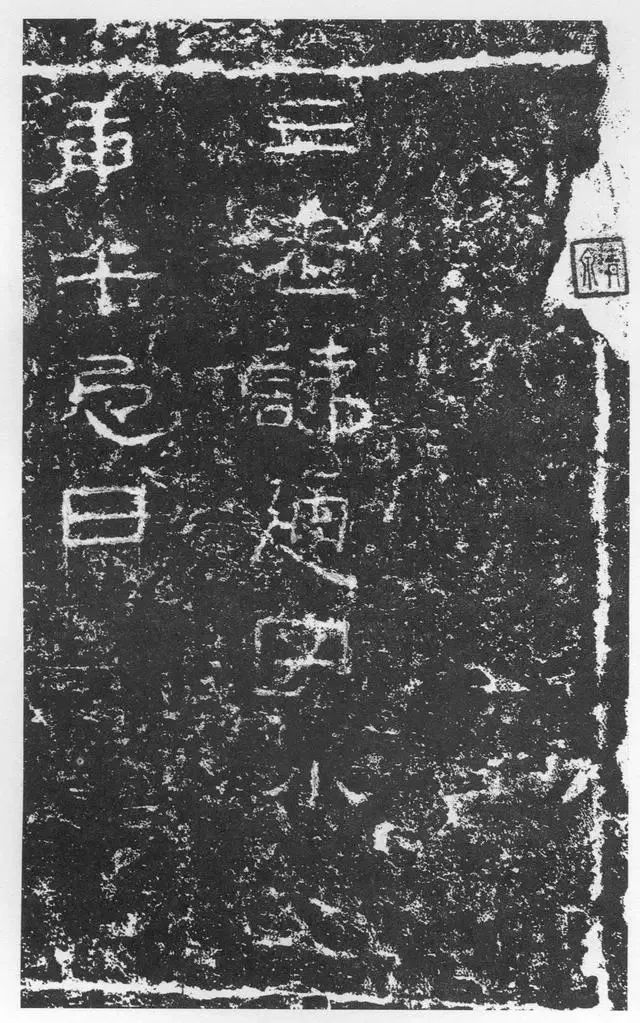 三老諱通字小父
庚午忌日